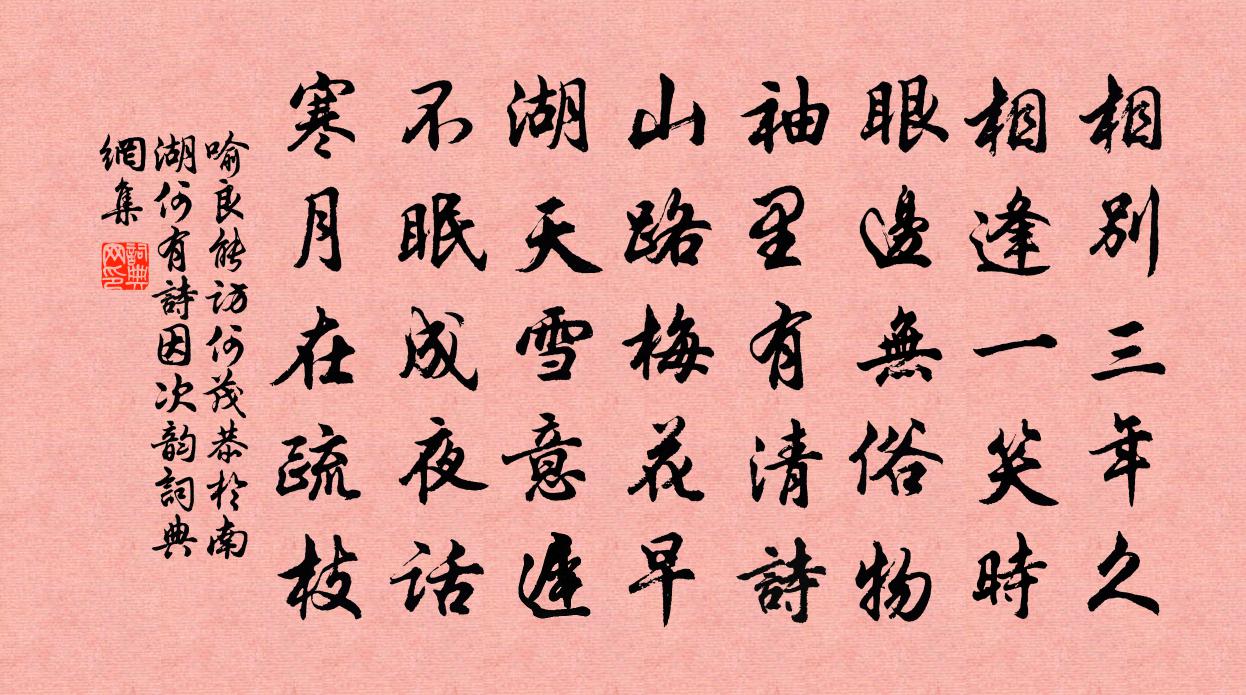 相別三年久
相逢一笑時
眼邊無俗物
袖里有清詩
山路梅花早
湖天雪意遲
不眠成夜話
寒月在疏枝
喻良能訪何茂恭於南
湖何有詩因次韵詞典
網集
詞典
网印